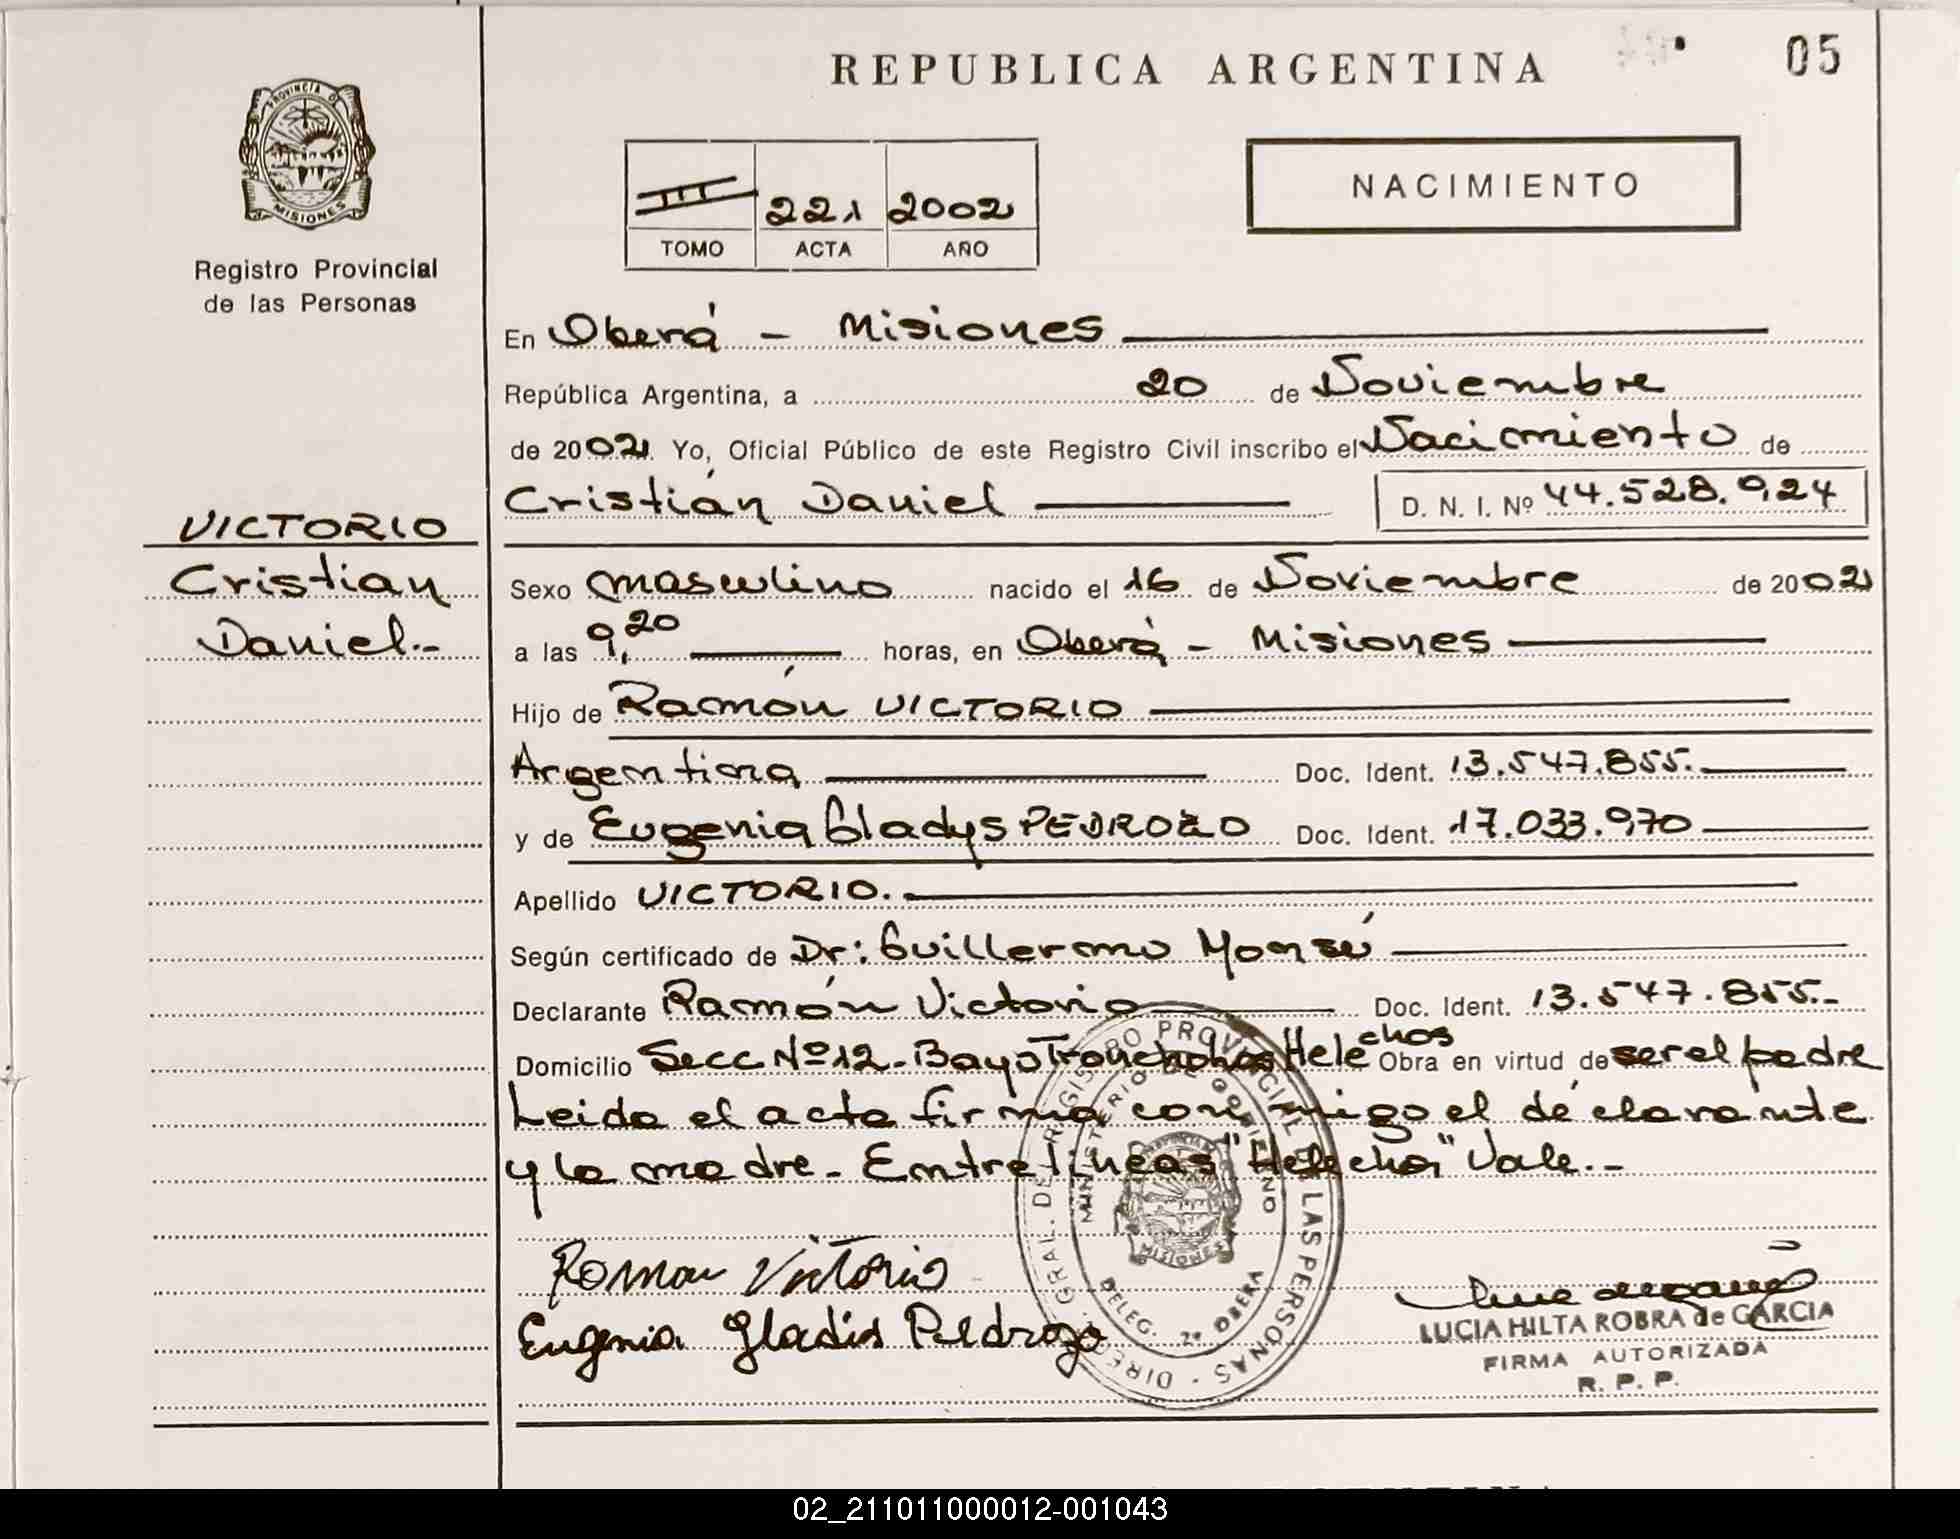 REPUBLICA ARGENTINA
05
PROVINCIA DE
MISIONES
Registro Provincial
de las Personas
221 2002
TOMO ACTA AÑO
NACIMIENTO
En Oberá - Misiones
República Argentina, a 20 de Noviembre
de 2002 Yo, Oficial Público de este Registro Civil inscribo el Nacimiento de
Cristián Daniel D. N. I. Nº 44.528.924
VICTORIO
Cristian
Daniel.-
Sexo masculino nacido el 16 de Noviembre de 2002
a las 9,20 horas, en Oberá - Misiones
Hijo de Ramón VICTORIO
Argentina Doc. Ident. 13.547.855.
y de Eugenia Gladys PEDROZO Doc. Ident. 17.033.970
Apellido VICTORIO.
Según certificado de Dr: Guillermo
Declarante Ramón Victorio Doc. Ident. 13.547.855.-
Domicilio Secc Nº 12- Bayo Helechos Obra en virtud de ser el padre
Leida el acta firma conmigo el declarante
y la madre.- Entrelineas "Helechos" Vale.-
DIREC. GRAL. DE REGISTRO PROVINCIAL DE LAS PERSONAS
MINISTERIO DE GOBIERNO
MISIONES
DELEG. 2ª OBERA
Roman Victorio
Eugenia Gladis Peldrozo
LUCIA HILTA ROBRA de GARCIA
FIRMA AUTORIZADA
R. P. P.
02_211011000012-001043